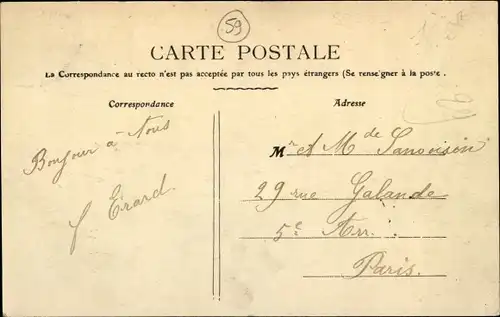 59
CARTE POSTALE
La Correspondance au recto n'est pas acceptée par tous les pays étrangers (Se renseigner à la poste.
Correspondance
Adresse
Bonjour à Tous
Erard
Mr et Mde
29 rue Galande
5e Arr.
Paris.